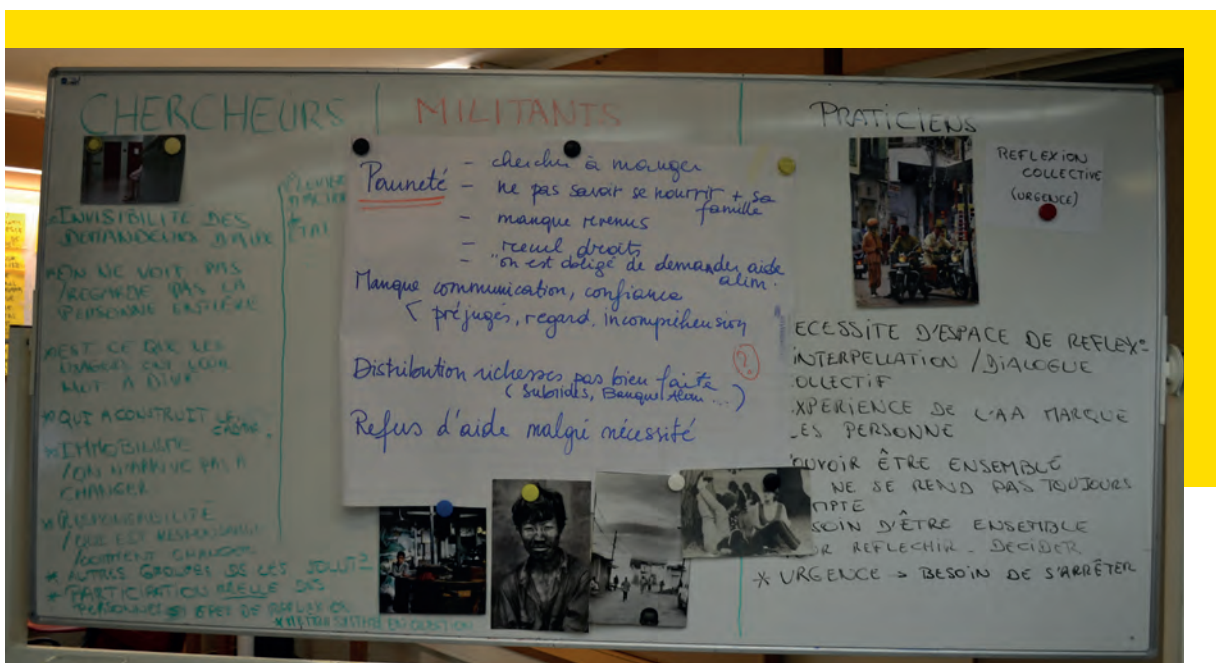 CHERCHEURS
* INVISIBILITE DES
DEMANDEURS D'AIDE
* ON NE VOIT PAS
/REGARDE PAS LA
PERSONNE ENTIÈRE
* EST CE QUE LES
USAGERS ONT LEUR
MOT A DIRE
* QUI A CONSTRUIT
* IMMOBILISME
/ON N'ARRIVE PAS A
CHANGER
* RESPONSABILITÉ
/QUI EST RESPONSABLE
/COMMENT CHANGER
* AUTRES GROUPES DE CES SOLUT
* PARTICIPATION RÉELLE DES
PERSONNES
SYSTÈME EN QUESTION
MILITANTS
Pauvreté - chercher à manger
- ne pas savoir se nourrir + sa
famille
- manque revenus
- recul droits
- "on est obligé de demander aide
alim.
Manque communication, confiance
préjugés, regard, incompréhension
Distribution richesses pas bien faite
(Subsides, Banque Alim ...)
?
Refus d'aide malgré nécessité
PRATICIENS
REFLEXION
COLLECTIVE
(URGENCE)
ECESSITE D'ESPACE DE REFLEX°
INTERPELLATION / DIALOGUE
OLLECTIF
XPERIENCE DE L'AA MARQUE
LES PERSONNE
OUVOIR ÊTRE ENSEMBLE
NE SE REND PAS TOUJOURS
MPTE
SOIN D'ÊTRE ENSEMBLE
REFLECHIR - DECIDER
* URGENCE → BESOIN DE S'ARRÊTER